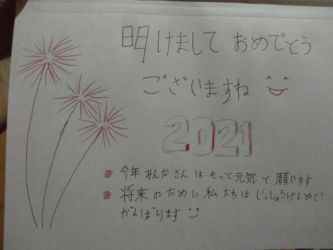 明けまして おめでとう
ございますね
2021
今年 みんなさん は もっと 元気 と 願います
将来 の ために 私 たち は じっしょうけんめで
がんばります